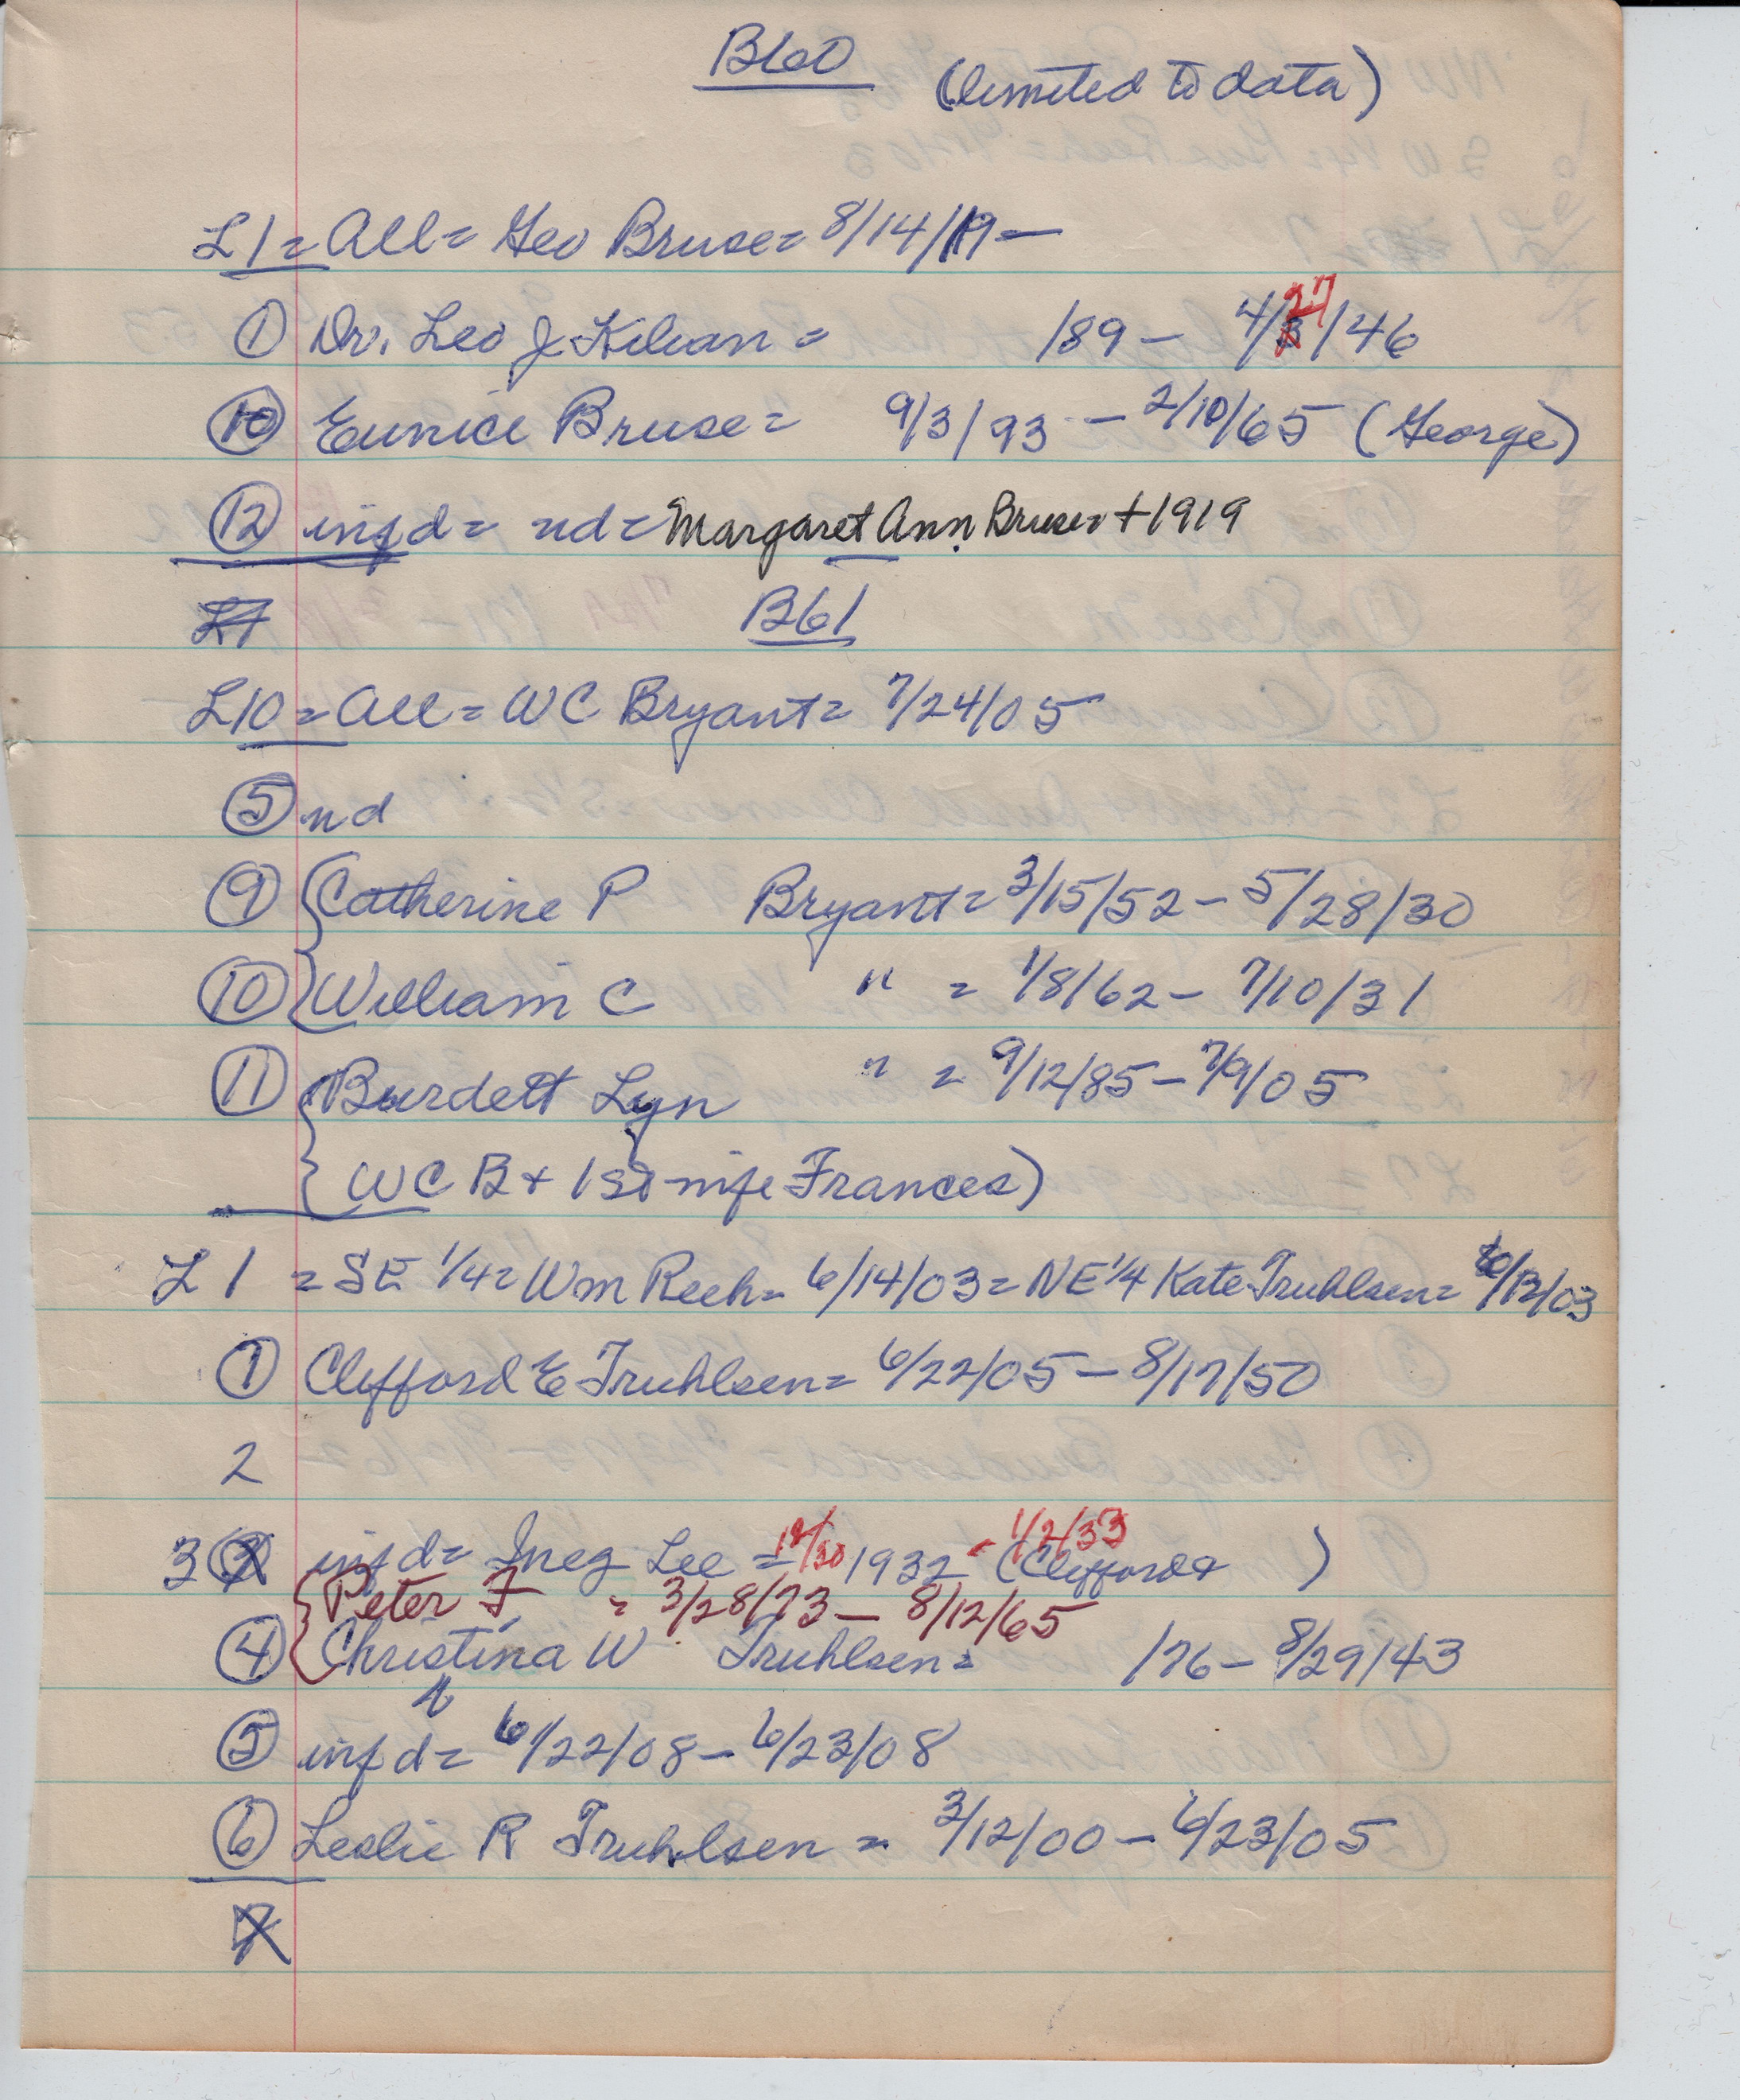 B60 (limited to data)
L1 = All = Geo Bruse = 8/14/19 —
① Dr. Leo J Kilian = /89 — 4/27/46
⑩ Eunice Bruse = 9/3/93 — 2/10/65 (George)
⑫ inf d = nd = Margaret Ann Bruse + 1919
B61
L10 = All = WC Bryant = 7/24/05
⑤ nd
⑨ {Catherine P Bryant = 3/15/52 — 5/28/30
⑩ {William C " = 1/8/62 — 7/10/31
⑪ {Burdett Lyn " = 9/12/85 — 7/9/05
{ WC B + 1st wife Frances)
L1 = SE 1/4 = Wm Reeh = 6/14/03 = NE 1/4 Kate Truhlsen = 6/12/03
① Clifford E Truhlsen = 6/22/05 — 8/17/50
2
3 inf d = Inez Lee = 12/30 1932 - 1/2/33 (Clifford + )
{Peter F = 3/28/73 — 8/12/65
④ Christina W Truhlsen = /76 — 8/29/43
⑤ inf d = 6/22/08 — 6/23/08
⑥ Leslie R Truhlsen = 3/12/00 — 6/23/05